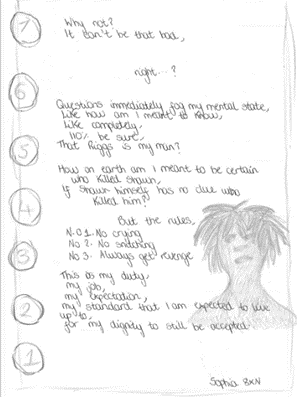 7
Why not?
It can't be that bad,
right...?
6
Questions immediately fog my mental state,
Like how am I meant to know,
Like completely,
110% be sure,
5
That Riggs is my man?
How on earth am I meant to be certain
who killed Shawn,
4
If Shawn himself has no clue who
killed him?
But the rules,
3
N.O 1. No crying
No 2. No snitching
No 3. Always get revenge
This is my duty,
my job,
2
my expectation,
my standard that I am expected to live
up to,
for my dignity to still be accepted
1
Sophia 8XN